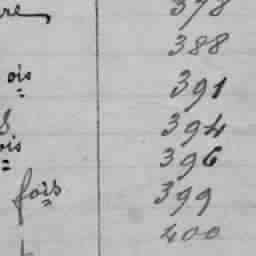 re 378
388
ois 391
394
ois 396
fois 399
400